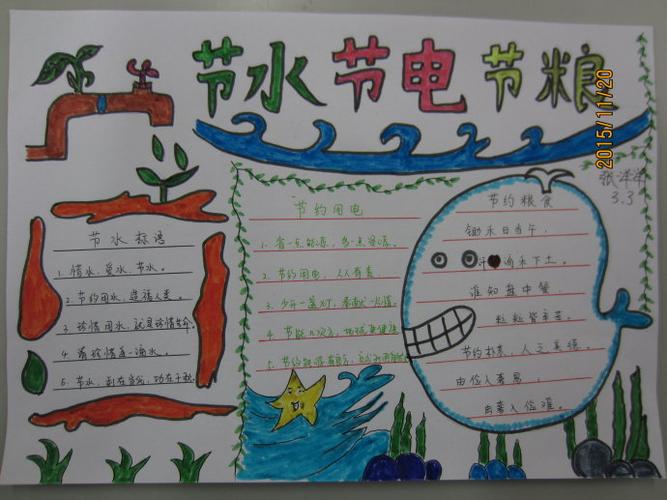 节水节电节粮
2015/11/20
张洋洋
3.3
节水标语
1. 惜水、爱水、节水。
2. 节约用水，造福人类。
3. 珍惜用水，就是珍惜生命。
4. 请珍惜每一滴水。
5. 节水，利在当代，功在千秋。
节约用电
1. 省一点能源，多一点资源。
2. 节约用电，人人有责。
3. 少开一盏灯，
4. 节能
5. 节约能源
节约粮食
锄禾日当午，
汗滴禾下土。
谁知盘中餐
粒粒皆辛苦。
节约朴素，人之美德。
由俭入奢易，
由奢入俭难。